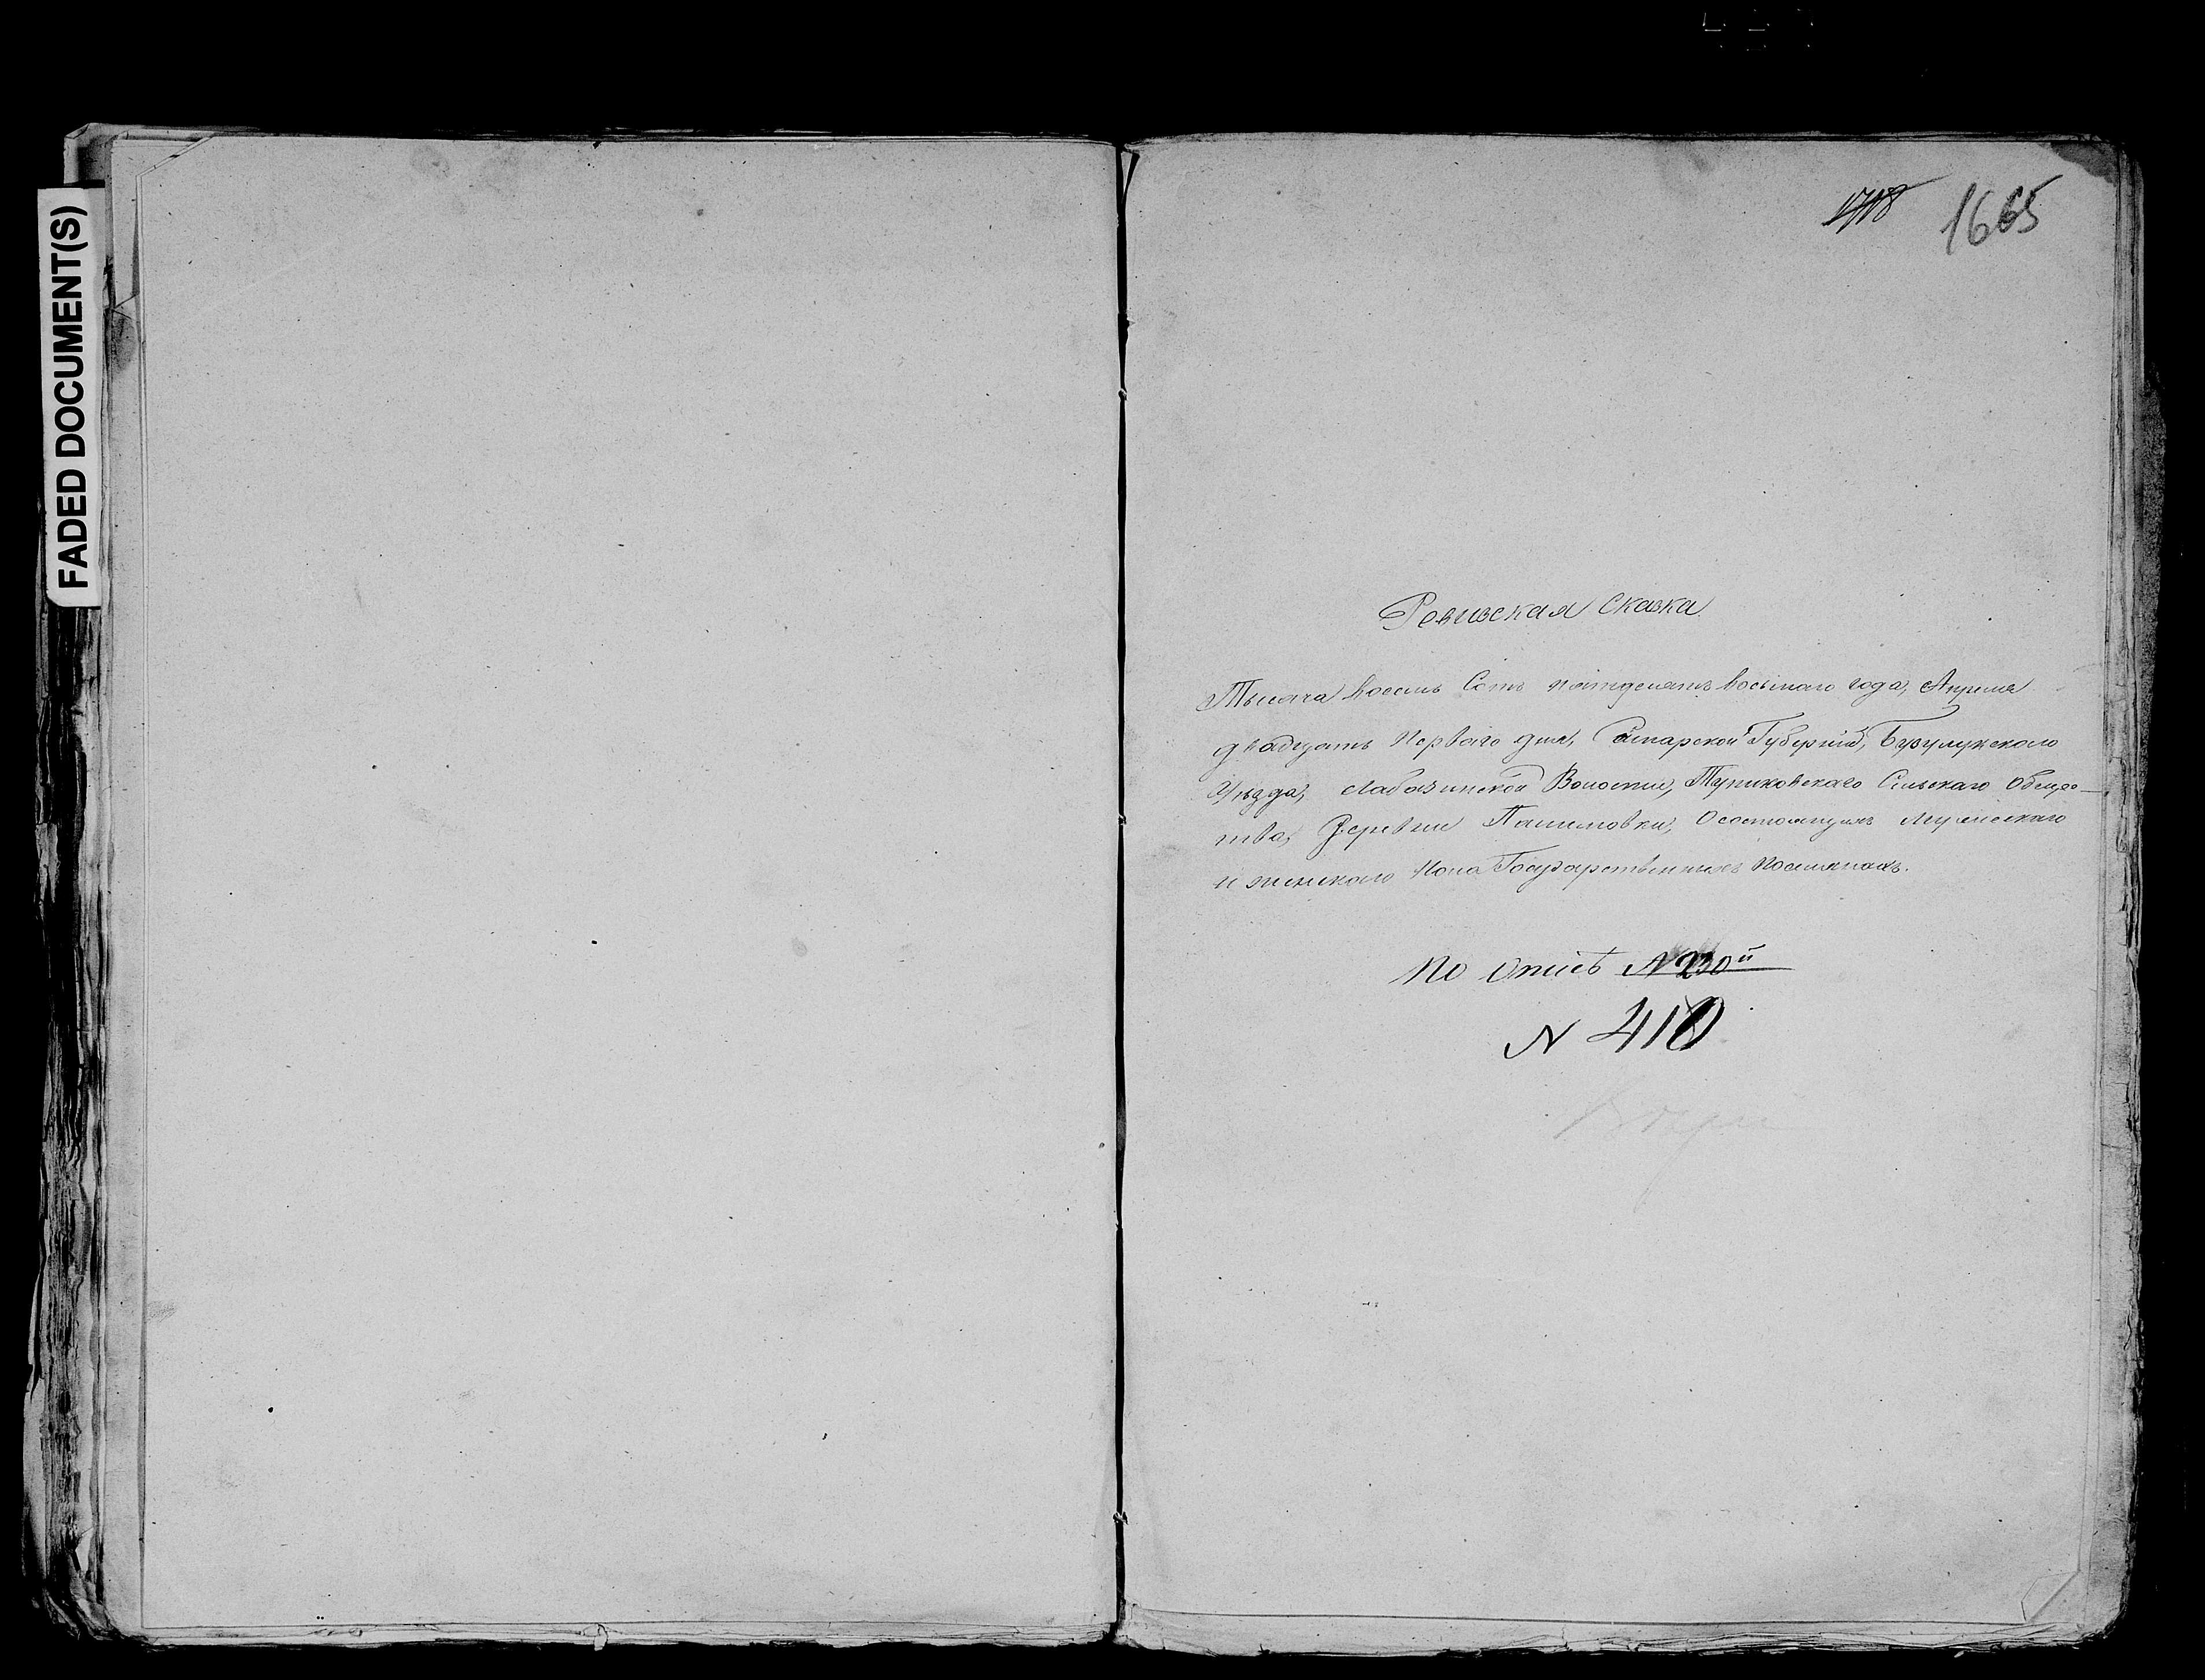 FADED DOCUMENT(S)
1718 1665
Ревизская сказка
Тысяча восемь сотъ пятьдесятъ восьмаго года, Апреля
двадцать перваго дня, Самарской Губернии, Бузулукского
Уезда, Лабазинской Волости, Тупиковскаго Сельскаго общес-
тва, Деревни Пашимовки, о состоящихъ мужескаго
и женского пола Государственныхъ поселянахъ.
По описѣ № 230й
№ 410